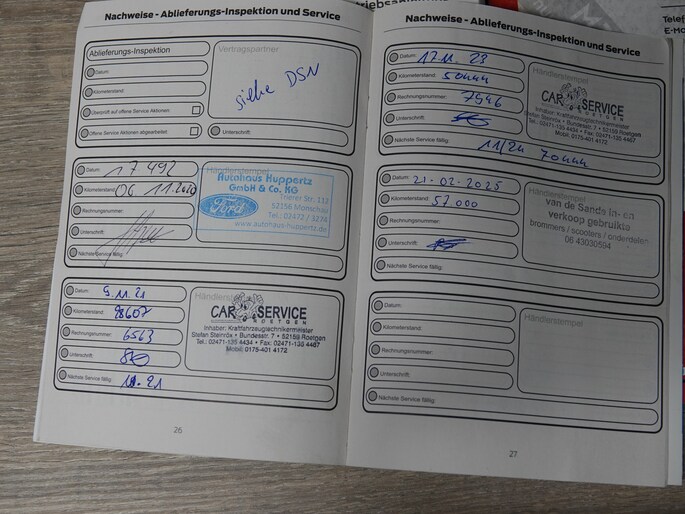 Nachweise - Ablieferungs-Inspektion und Service
Ablieferungs-Inspektion
Datum:
Kilometerstand:
Überprüft auf offene Service Aktionen:
Offene Service Aktionen abgearbeitet:
Vertragspartner
siehe DSN
Unterschrift:
Datum: 17 492
Kilometerstand: 06 11.2020
Rechnungsnummer:
Unterschrift:
Nächste Service fällig:
Händlerstempel
Autohaus Huppertz
GmbH & Co. KG
Ford
Trierer Str. 113
52156 Monschau
Tel.: 02472 / 3274
www.autohaus-huppertz.de
Datum: 9.11.21
Kilometerstand:
Rechnungsnummer: 6563
Unterschrift:
Nächste Service fällig:
Händlerstempel
CAR SERVICE
ROETGEN
Inhaber: Kraftfahrzeugtechnikermeister
Stefan Steinröx • Bundesstr. 7 • 52159 Roetgen
Tel.: 02471-135 4434 • Fax: 02471-135 4467
Mobil: 0175-401 4172
26
Nachweise - Ablieferungs-Inspektion und Service
Datum: 17.11.23
Kilometerstand:
Rechnungsnummer: 7546
Unterschrift:
Nächste Service fällig:
Händlerstempel
CAR SERVICE
ROETGEN
Inhaber: Kraftfahrzeugtechnikermeister
Stefan Steinröx • Bundesstr. 7 • 52159 Roetgen
Tel.: 02471-135 4434 • Fax: 02471-135 4467
Mobil: 0175-401 4172
Datum: 21-02-2025
Kilometerstand: 57 000
Rechnungsnummer:
Unterschrift:
Nächste Service fällig:
Händlerstempel
van de Sande in- en
verkoop gebruikte
brommers / scooters / onderdelen
06 43030594
Datum:
Kilometerstand:
Rechnungsnummer:
Unterschrift:
Nächste Service fällig:
Händlerstempel
27